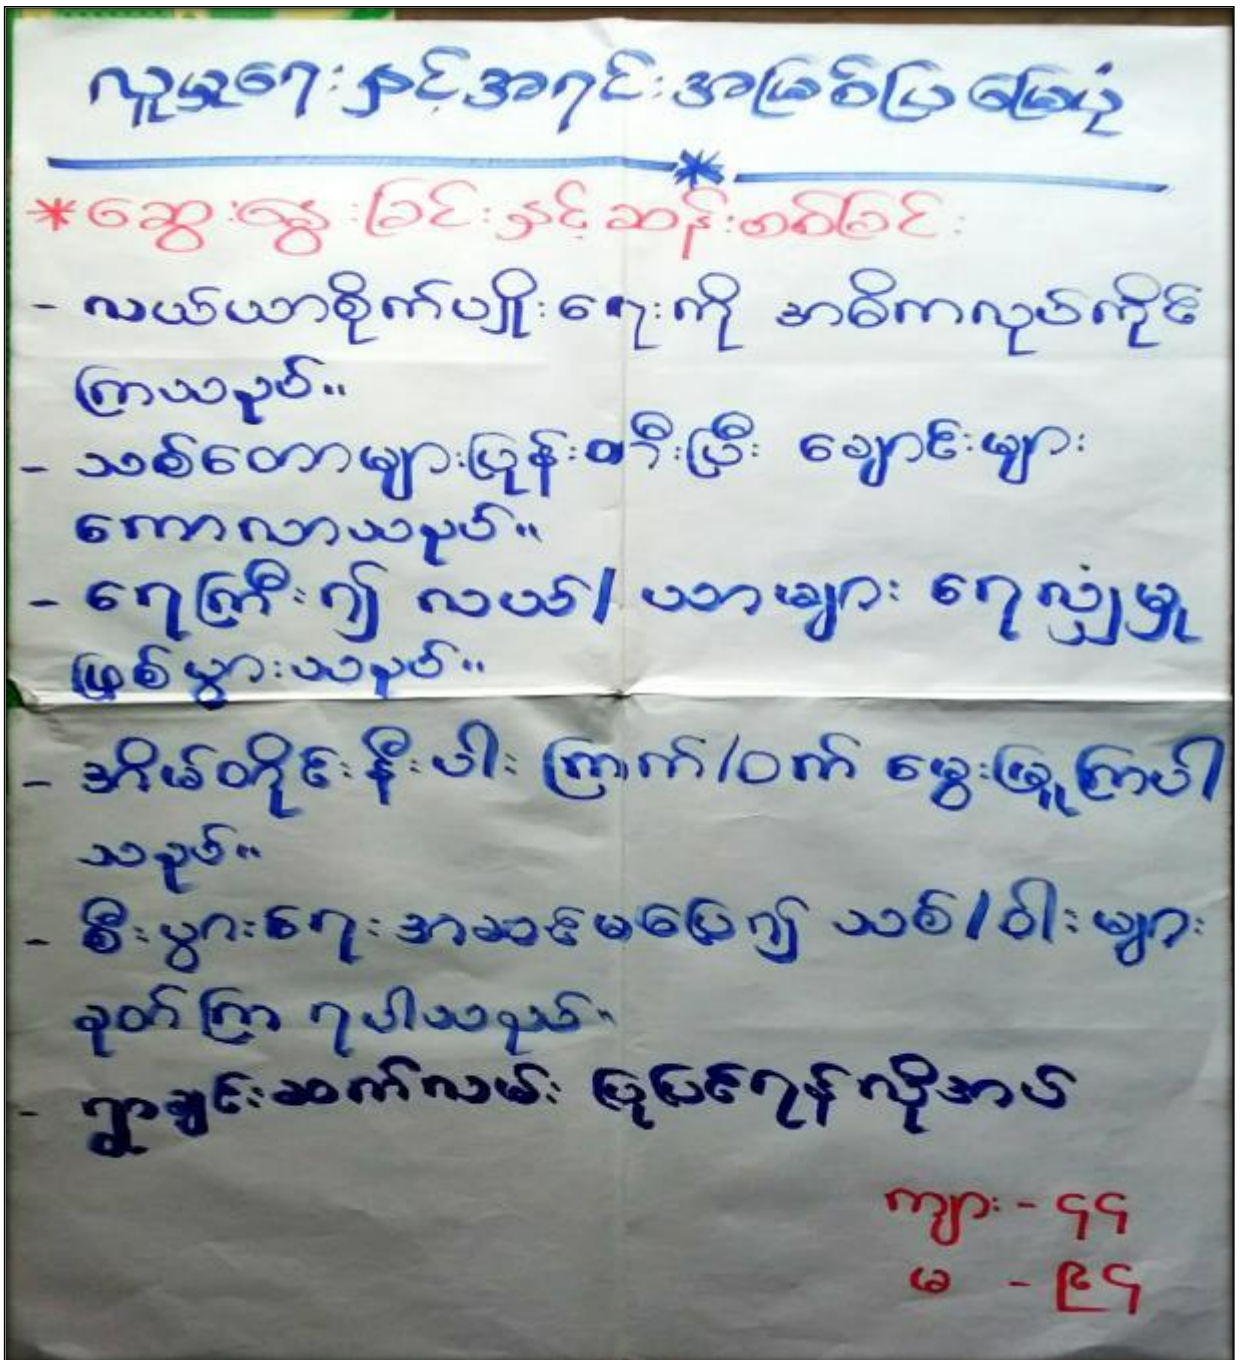 လူမှုရေးနှင့်အရင်းအမြစ်ပြမြေပုံ
*ဆွေးနွေးခြင်းနှင့်ဆန်းစစ်ခြင်း
- လယ်ယာစိုက်ပျိုးရေးကို အဓိကလုပ်ကိုင်
ကြသည်။
- သစ်တောများပြုန်းတီးပြီး ချောင်းများ
ကောလာသည်။
- ရေကြီး၍ လယ်/ယာများ ရေလျှံမှု
ဖြစ်ပွားသည်။
- အိမ်တိုင်းနီးပါး ကြက်/ဝက် မွေးမြူကြပါ
သည်။
- စီးပွားရေးအဆင်မပြေ၍ သစ်/ဝါးများ
ခုတ်ကြ ရပါသည်။
- ရွာချင်းဆက်လမ်း ပြုပြင်ရန်လိုအပ်
ကျား - ၄၄
မ - ၉၄